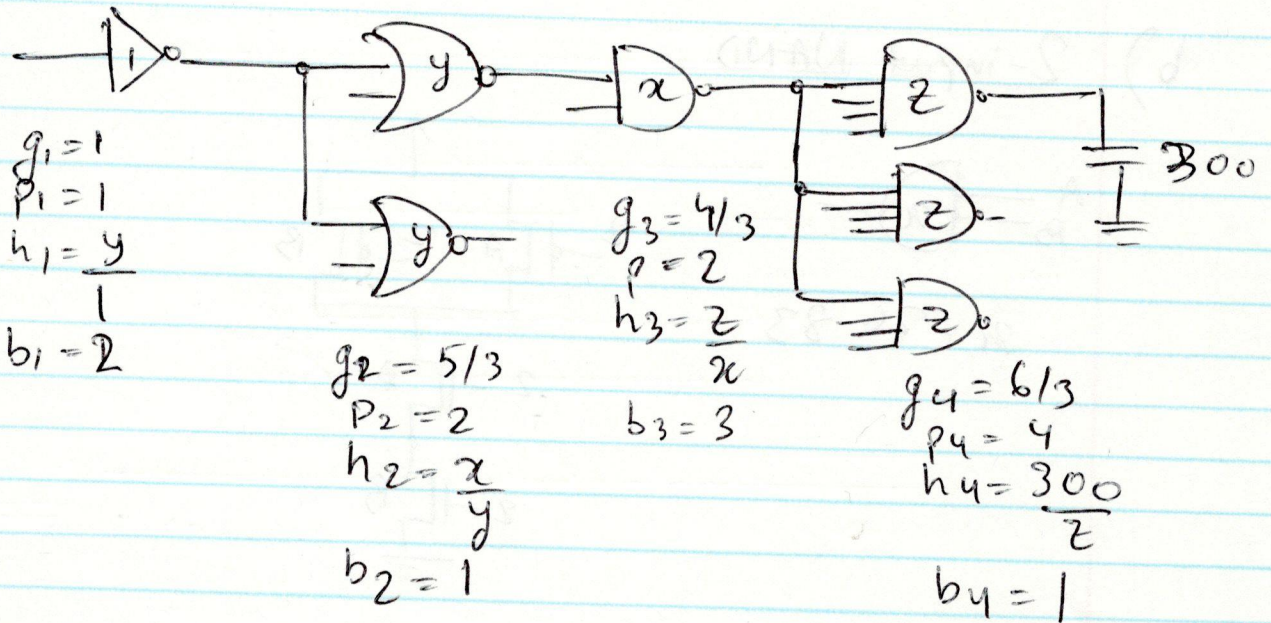 1
y
x
z
300
y
z
z
g₁ = 1
p₁ = 1
h₁ = y/1
b₁ = 2
g₂ = 5/3
p₂ = 2
h₂ = x/y
b₂ = 1
g₃ = 4/3
p = 2
h₃ = z/x
b₃ = 3
g₄ = 6/3
p₄ = 4
h₄ = 300/z
b₄ = 1